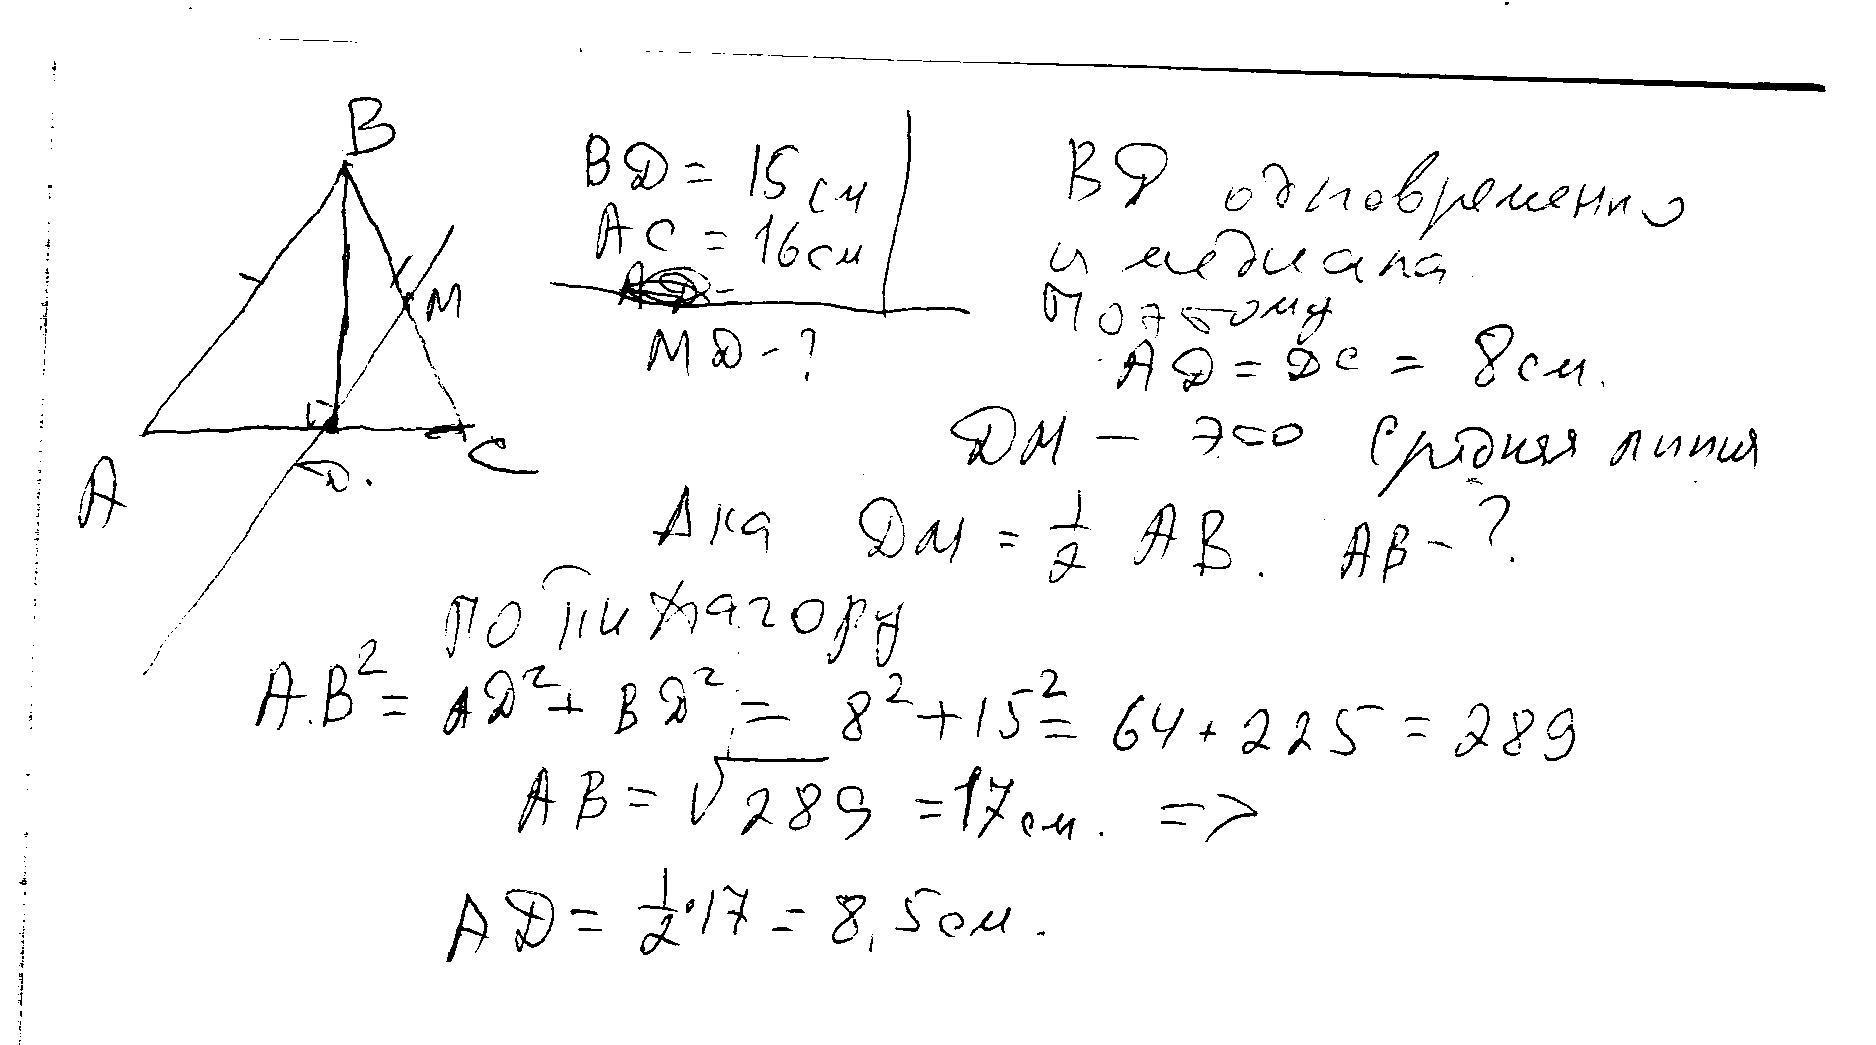 B
M
A
D.
C
BD = 15 см
AC = 16 см
MD - ?
BD одновременно
и медиана
поэтому
AD = DC = 8 см.
DM — это средняя линия
Δка DM = 1/2 AB. AB - ?
по Пифагору
AB² = AD² + BD² = 8² + 15² = 64 + 225 = 289
AB = √289 = 17 см. =>
AD = 1/2 · 17 = 8,5 см.